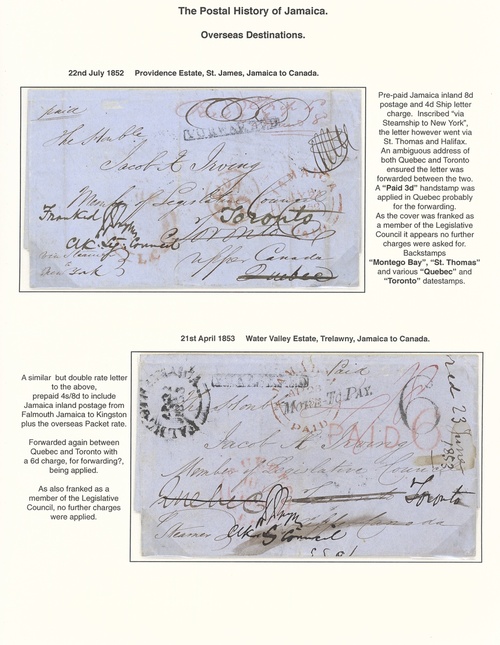 The Postal History of Jamaica.
Overseas Destinations.
22nd July 1852 Providence Estate, St. James, Jamaica to Canada.
paid
The Honble
Jacob Æ Irving
Member of Legislative Council
Franked
Toronto
Clk. Leg Council
Upper Canada
New York
Quebec
Pre-paid Jamaica inland 8d
postage and 4d Ship letter
charge. Inscribed “via
Steamship to New York”,
the letter however went via
St. Thomas and Halifax.
An ambiguous address of
both Quebec and Toronto
ensured the letter was
forwarded between the two.
A “Paid 3d” handstamp was
applied in Quebec probably
for the forwarding.
As the cover was franked as
a member of the Legislative
Council it appears no further
charges were asked for.
Backstamps
“Montego Bay”, “St. Thomas”
and various “Quebec” and
“Toronto” datestamps.
21st April 1853 Water Valley Estate, Trelawny, Jamaica to Canada.
A similar but double rate letter
to the above,
prepaid 4s/8d to include
Jamaica inland postage from
Falmouth Jamaica to Kingston
plus the overseas Packet rate.
Forwarded again between
Quebec and Toronto with
a 6d charge, for forwarding?,
being applied.
As also franked as a
member of the Legislative
Council, no further charges
were applied.
JAMAICA
FALMOUTH
Paid
More To Pay
PAID
The Honble
PAID 6
Jacob Æ Irving
Member of Legislative Council
Quebec
Toronto
Canada
Steamer
Clk Leg Council
1853